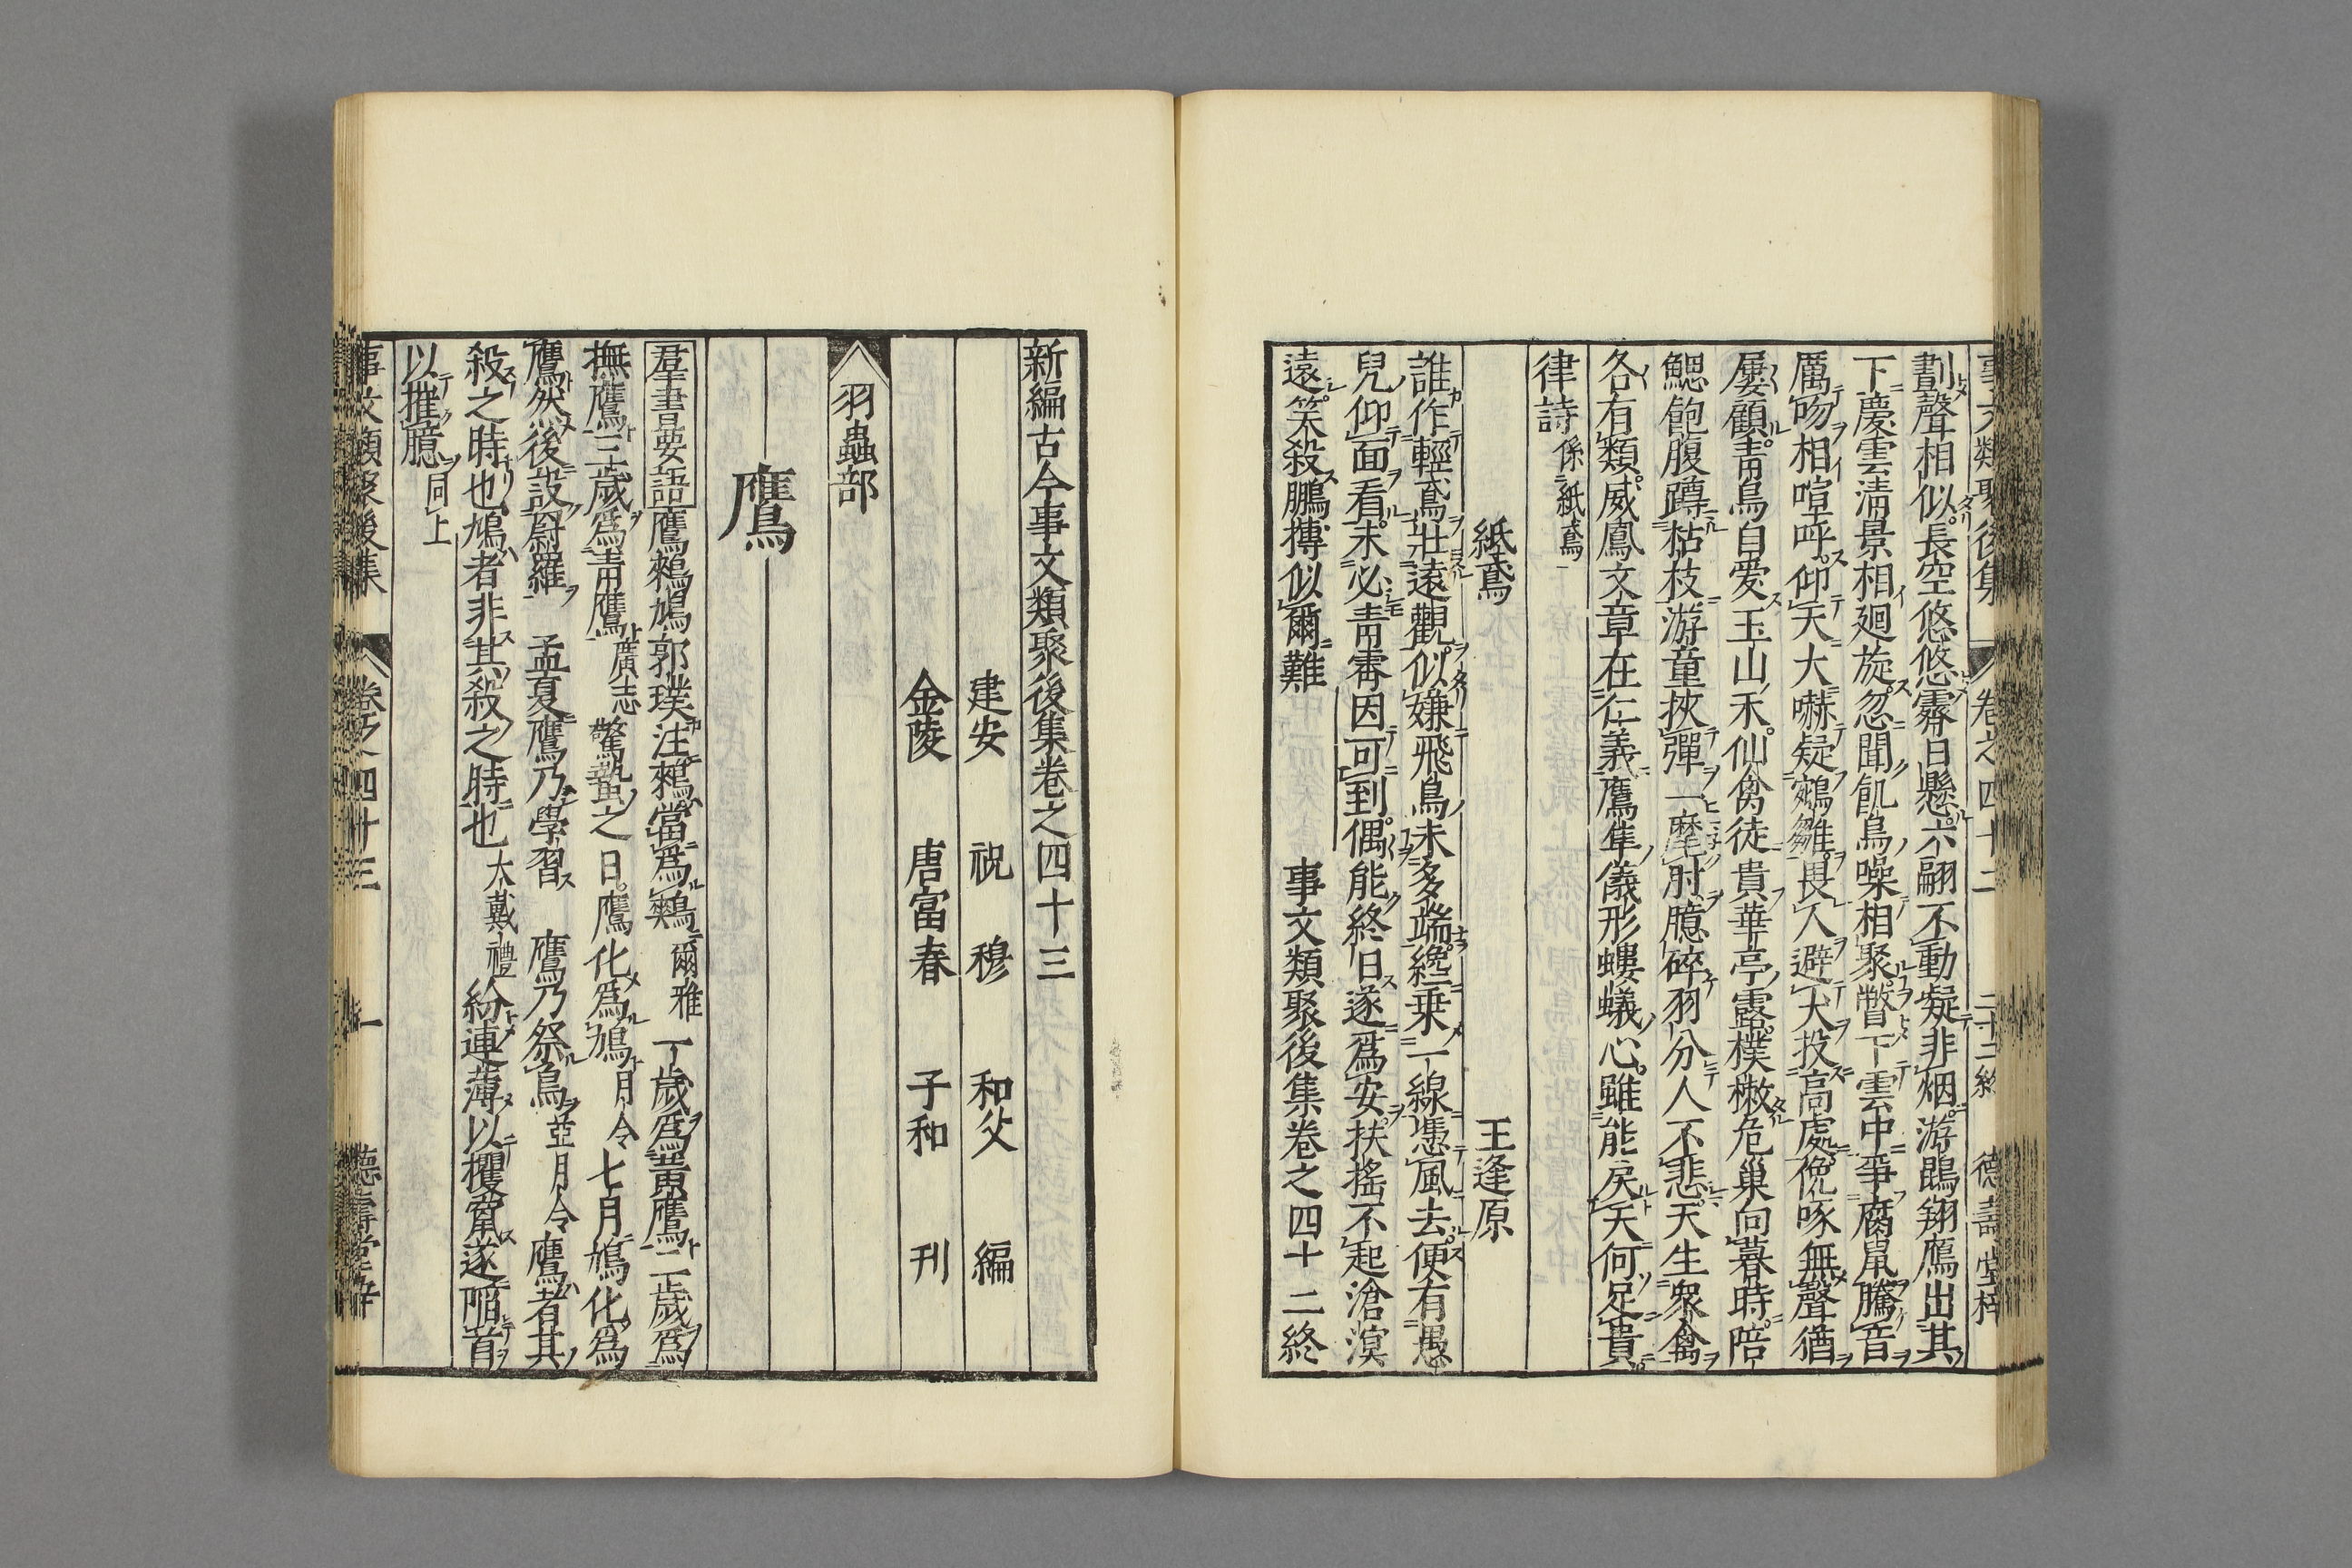 劃聲相似長空悠悠霽日懸六翮不動凝非烟游鵾翔鴈出其
下慶雲清景相廻旋忽聞飢烏噪相聚瞥下雲中爭腐鼠騰音
厲吻相喧呼仰天大嚇疑鵷雛畏人避犬投高處俛啄無聲猶
屢顧靑鳥自愛玉山禾仙禽徒貴華亭露樸樕危巢向暮時陪
鰓飽腹蹲枯枝游童挾彈一麾肘臆碎羽分人不悲天生衆禽
各有類威鳳文章在仁義鷹隼儀形螻蟻心雖能戾天何足貴
律詩 係紙鳶
紙鳶 王逢原
誰作輕鳶壯遠觀似嫌飛鳥未多端纔乗一線憑風去便有愚
兒仰面看未必靑霄因可到偶能終日遂爲安扶搖不起滄溟
遠笑殺鵬摶似爾難 事文類聚後集卷之四十二終
新編古今事文類聚後集卷之四十三
建安 祝 穆 和父 編
金陵 唐富春 子和 刊
羽蟲部
鷹
羣書要語鷹鶆鳩郭璞注鶆當爲鷞爾雅 一歲爲黃鷹二歲爲
撫鷹三歲爲靑鷹廣志 驚蟄之日鷹化爲鳩月令七月鳩化爲
鷹然後設罻羅 孟夏鷹乃學習 鷹乃祭鳥並月令鷹者其
殺之時也鳩者非其殺之時也大戴禮紛連薄以攫甯遂隔首
以摧臆同上
事文類聚後集 卷之四十三 一 德壽堂梓